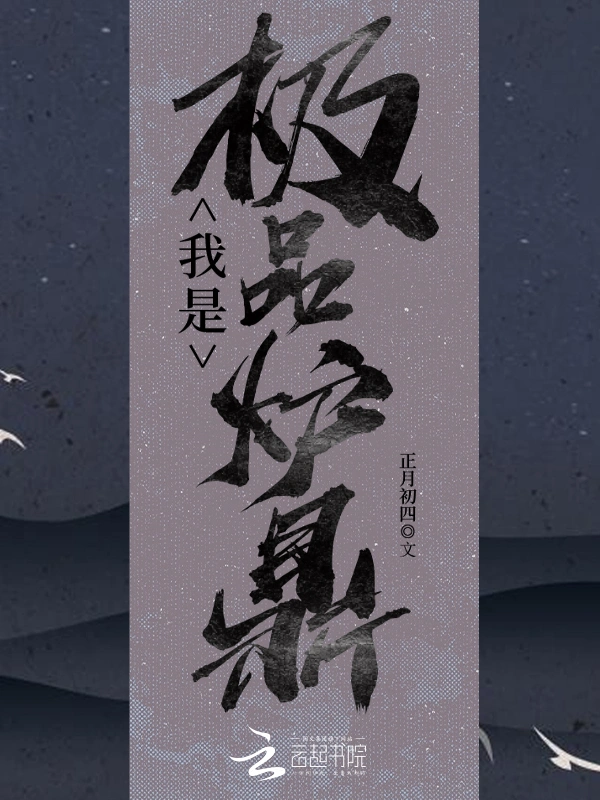 <我是>
极品炉鼎
正月初四◎文
云起书院